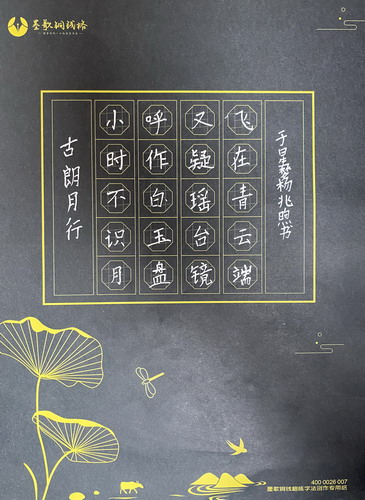 墨歌铜钱格
古朗月行
小时不识月
呼作白玉盘
又疑瑶台镜
飞在青云端
杨兆书
400 0026 007
墨歌铜钱格练字法作专用纸